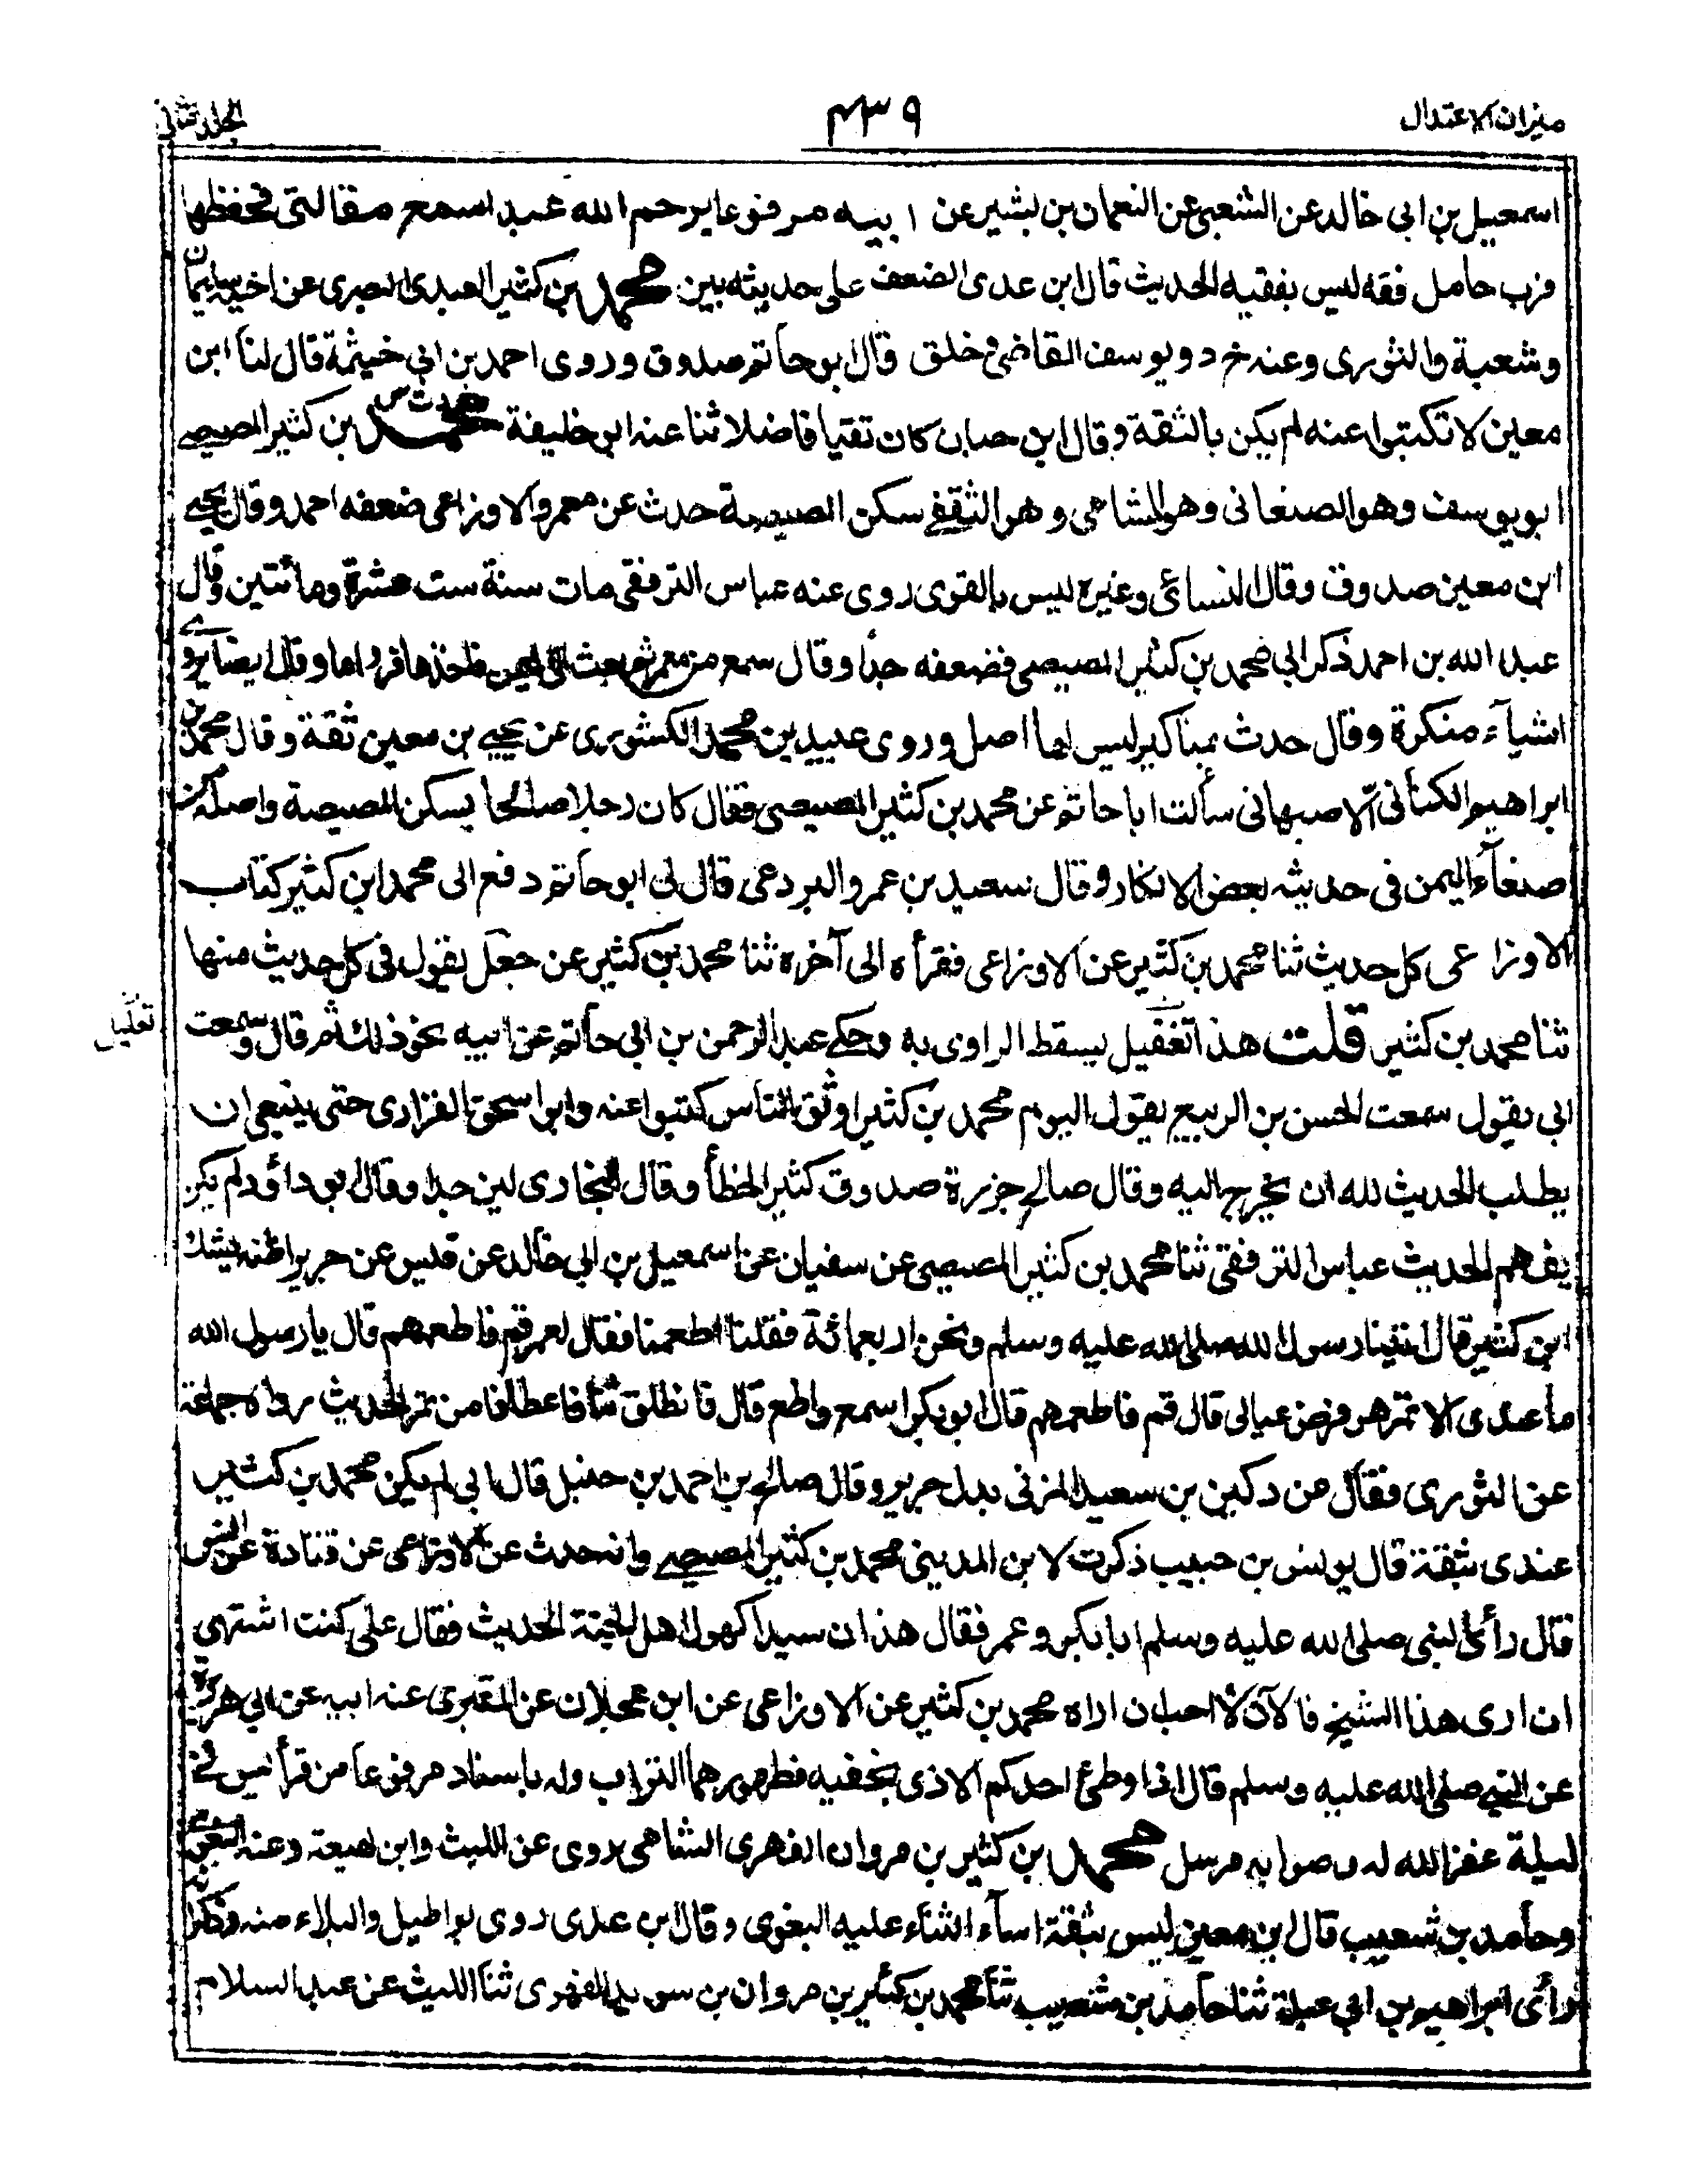 ميزان الاعتدال
٤٣٩
الجلد الثانى
اسمعيل بن ابى خالد عن الشعبى عن النعمان بن بشير عن ابيه مرفوعا يرحم الله عبدا سمع مقالتى فحفظها
فرب حامل فقه ليس بفقيه الحديث قال ابن عدى الضعف على حديثه بين محمد بن كثير العبدى البصرى عن اخيه سليمان
وشعبة والثورى وعنه خ د ويوسف القاضى وخلق قال ابو حاتم صدوق وروى احمد بن ابى خيثمة قال لنا ابن
معين لا تكتبوا عنه لم يكن بالثقة وقال ابن حبان كان تقيا فاضلا ثنا عنه ابن خليفة محمد د ت س بن كثير المصيصى
ابو يوسف وهو الصنعانى وهو الشامى وهو الثقفى سكن المصيصة حدث عن معمر والاوزاعى ضعفه احمد وقال يحيى
ابن معين صدوق وقال النسائى وغيره ليس بالقوى روى عنه عباس الترقفى مات سنة ست عشرة ومائتين وقال
عبد الله بن احمد ذكر ابى محمد بن كثير المصيصى فضعفه جدا وقال سمع من معمر ثم بعث الى اليمن فاخذها فرواها وقال ايضا يروى
اشيآء منكرة وقال حدث بمناكير ليس لها اصل وروى عبيد بن محمد الكشورى عن يحيى بن معين ثقة وقال محمد بن
ابراهيم الكنانى الاصبهانى سألت ابا حاتم عن محمد بن كثير المصيصى فقال كان رجلا صالحا يسكن المصيصة واصله من
صنعآء اليمن فى حديثه بعض الانكار وقال سعيد بن عمرو البردعى قال لى ابو حاتم دفع الى محمد ابن كثير كتاب
الاوزاعى كل حديث ثنا محمد بن كثير عن الاوزاعى فقرأه الى آخره ثنا محمد بن كثير عن جعل يقول فى كل حديث منها
ثنا محمد بن كثير قلت هذا تغفيل يسقط الراوى به وحكى عبد الرحمن بن ابى حاتم عن ابيه نحو ذلك ثم قال وسمعت
تعليل
ابى يقول سمعت الحسن بن الربيع يقول اليوم محمد بن كثير اوثق الناس كتبوا عنه وابو اسحق الفزارى حتى ينبغى ان
يطلب الحديث لله ان يخرج اليه وقال صالح جزرة صدوق كثير الخطأ وقال البخارى لين جدا وقال ابو داؤد لم يكن
يفهم الحديث عباس الترقفى ثنا محمد بن كثير المصيصى عن سفيان عن اسمعيل بن ابى خالد عن قيس عن جرير اظنه يشك
ابن كثير قال اتينا رسول الله صلى الله عليه وسلم ونحن اربعمائة فقلنا اطعمنا فقال لعمر قم فاطعمهم قال يا رسول الله
ما عندى الا تمر هو فرض عيالى قال قم فاطعمهم قال ابو بكر اسمع واطع قال فانطلق بنا فاعطانا من تمر الحديث رواه جماعة
عن الثورى فقال عن دكين بن سعيد المزنى بدل جرير وقال صالح بن احمد بن حنبل قال ابى لم يكن محمد بن كثير
عندى بثقة قال يونس بن حبيب ذكرت لابن المدينى محمد بن كثير المصيصى وانه حدث عن الاوزاعى عن قتادة عن انس
قال رأى النبى صلى الله عليه وسلم ابا بكر وعمر فقال هذان سيدا كهول اهل الجنة الحديث فقال على كنت اشتهى
ان ارى هذا الشيخ فالآن لا احب ان اراه محمد بن كثير عن الاوزاعى عن ابن عجلان عن المقبرى عنه ابيه عن ابى هريرة
عن النبى صلى الله عليه وسلم قال اذا وطئ احدكم الاذى بخفيه فطهورهما التراب وله باسناد مرفوعا من قرأ يس فى
ليلة غفر الله له وصوابه مرسل محمد بن كثير بن مروان الفهرى الشامى روى عن الليث وابن لهيعة وعنه البغوى
وحامد بن شعيب قال ابن معين ليس بثقة اسآء الثناء عليه البغوى وقال ابن عدى روى بواطيل والبلاء منه وذكر انه
رأى ابراهيم بن ابى عبلة ثنا حامد بن شعيب ثنا محمد بن كثير بن مروان بن سويد الفهرى ثنا الليث عن عبد السلام